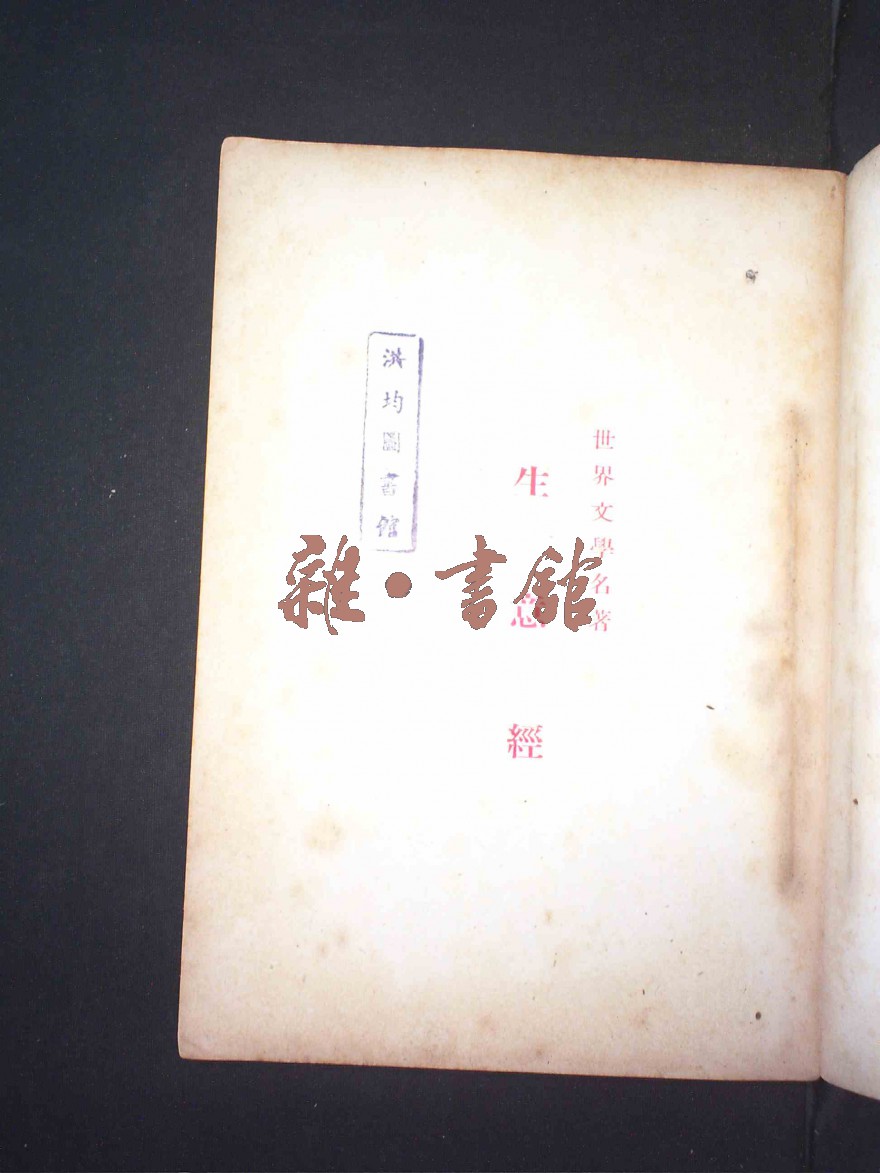 世界文學名著
生意經
洪均圖書館
雜·書館